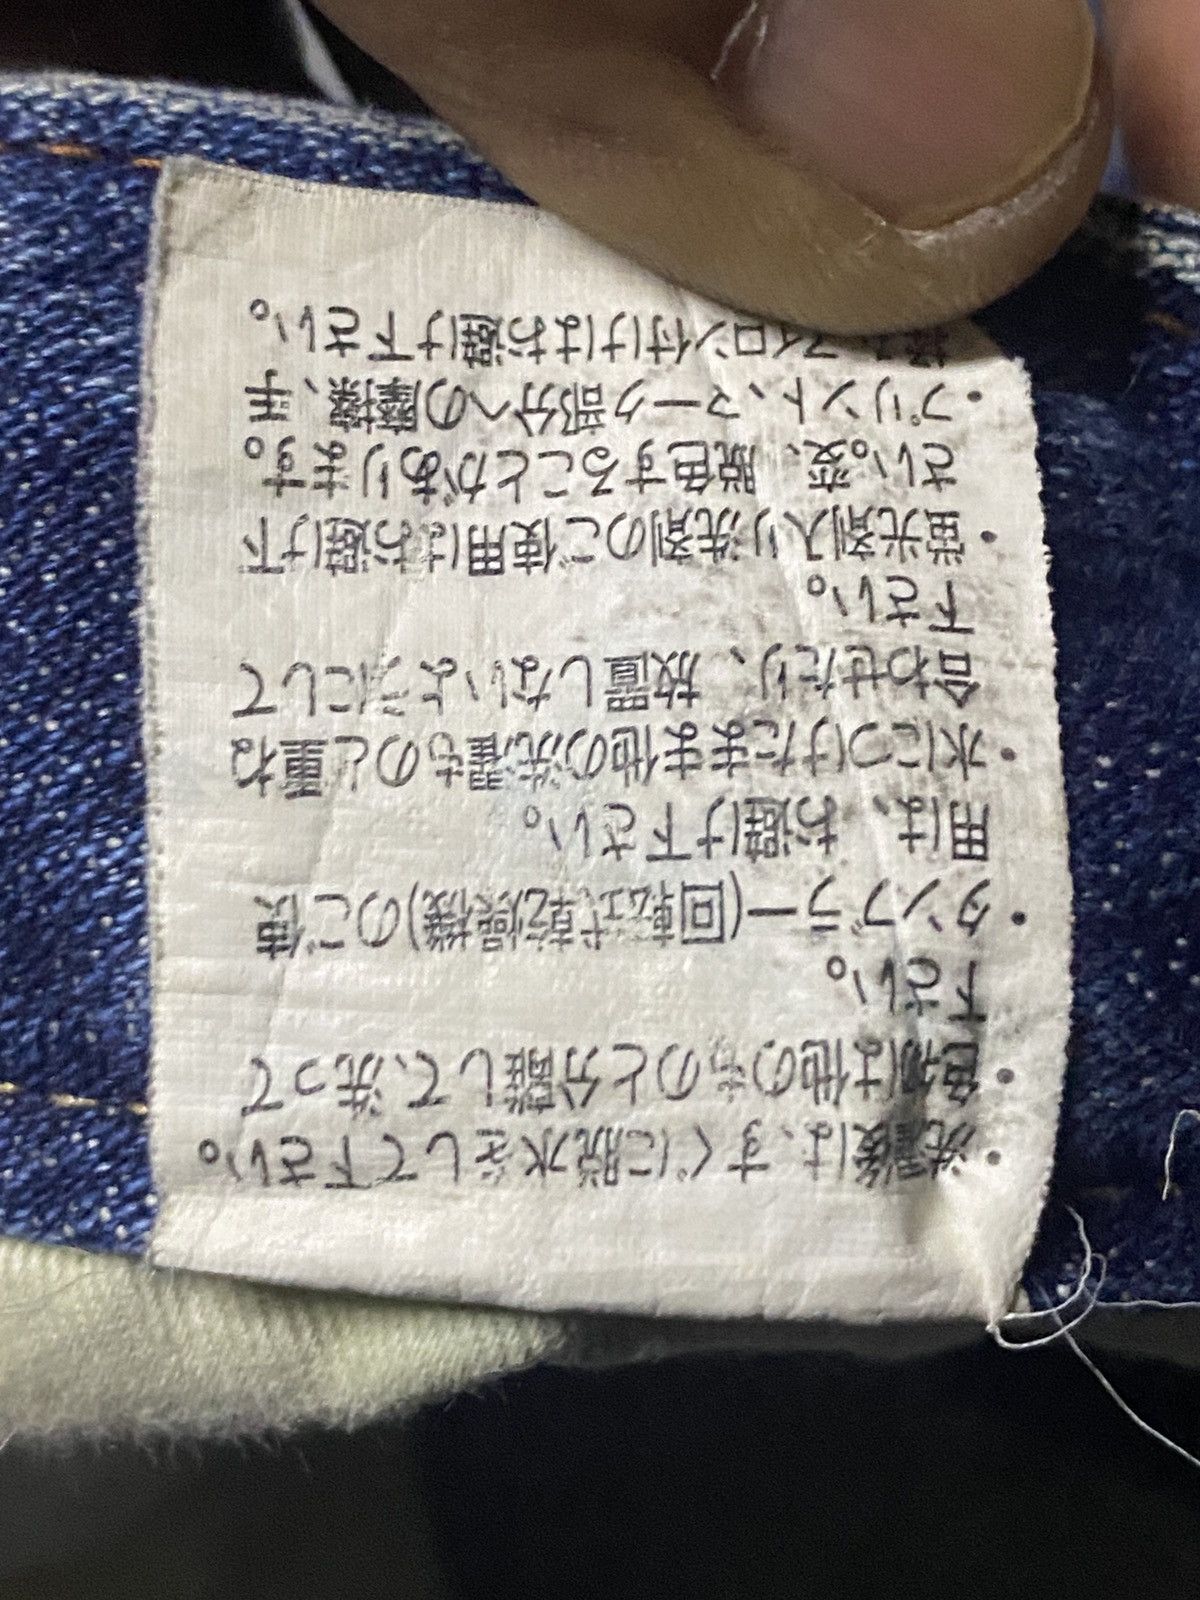 ・洗濯後は、すぐに脱水をして下さい。
・色物は他のものと分離して、洗って
下さい。
・タンブラー(回転式乾燥機)のご使
用は、お避け下さい。
・水につけたまま他の洗濯ものと重ね
合わせたり、放置しないようにして
下さい。
・蛍光剤入り洗剤のご使用はお避け下
さい。変、脱色することがあります。
・プリント、マーク部分への摩擦、手
揉みアイロン付けはお避け下さい。